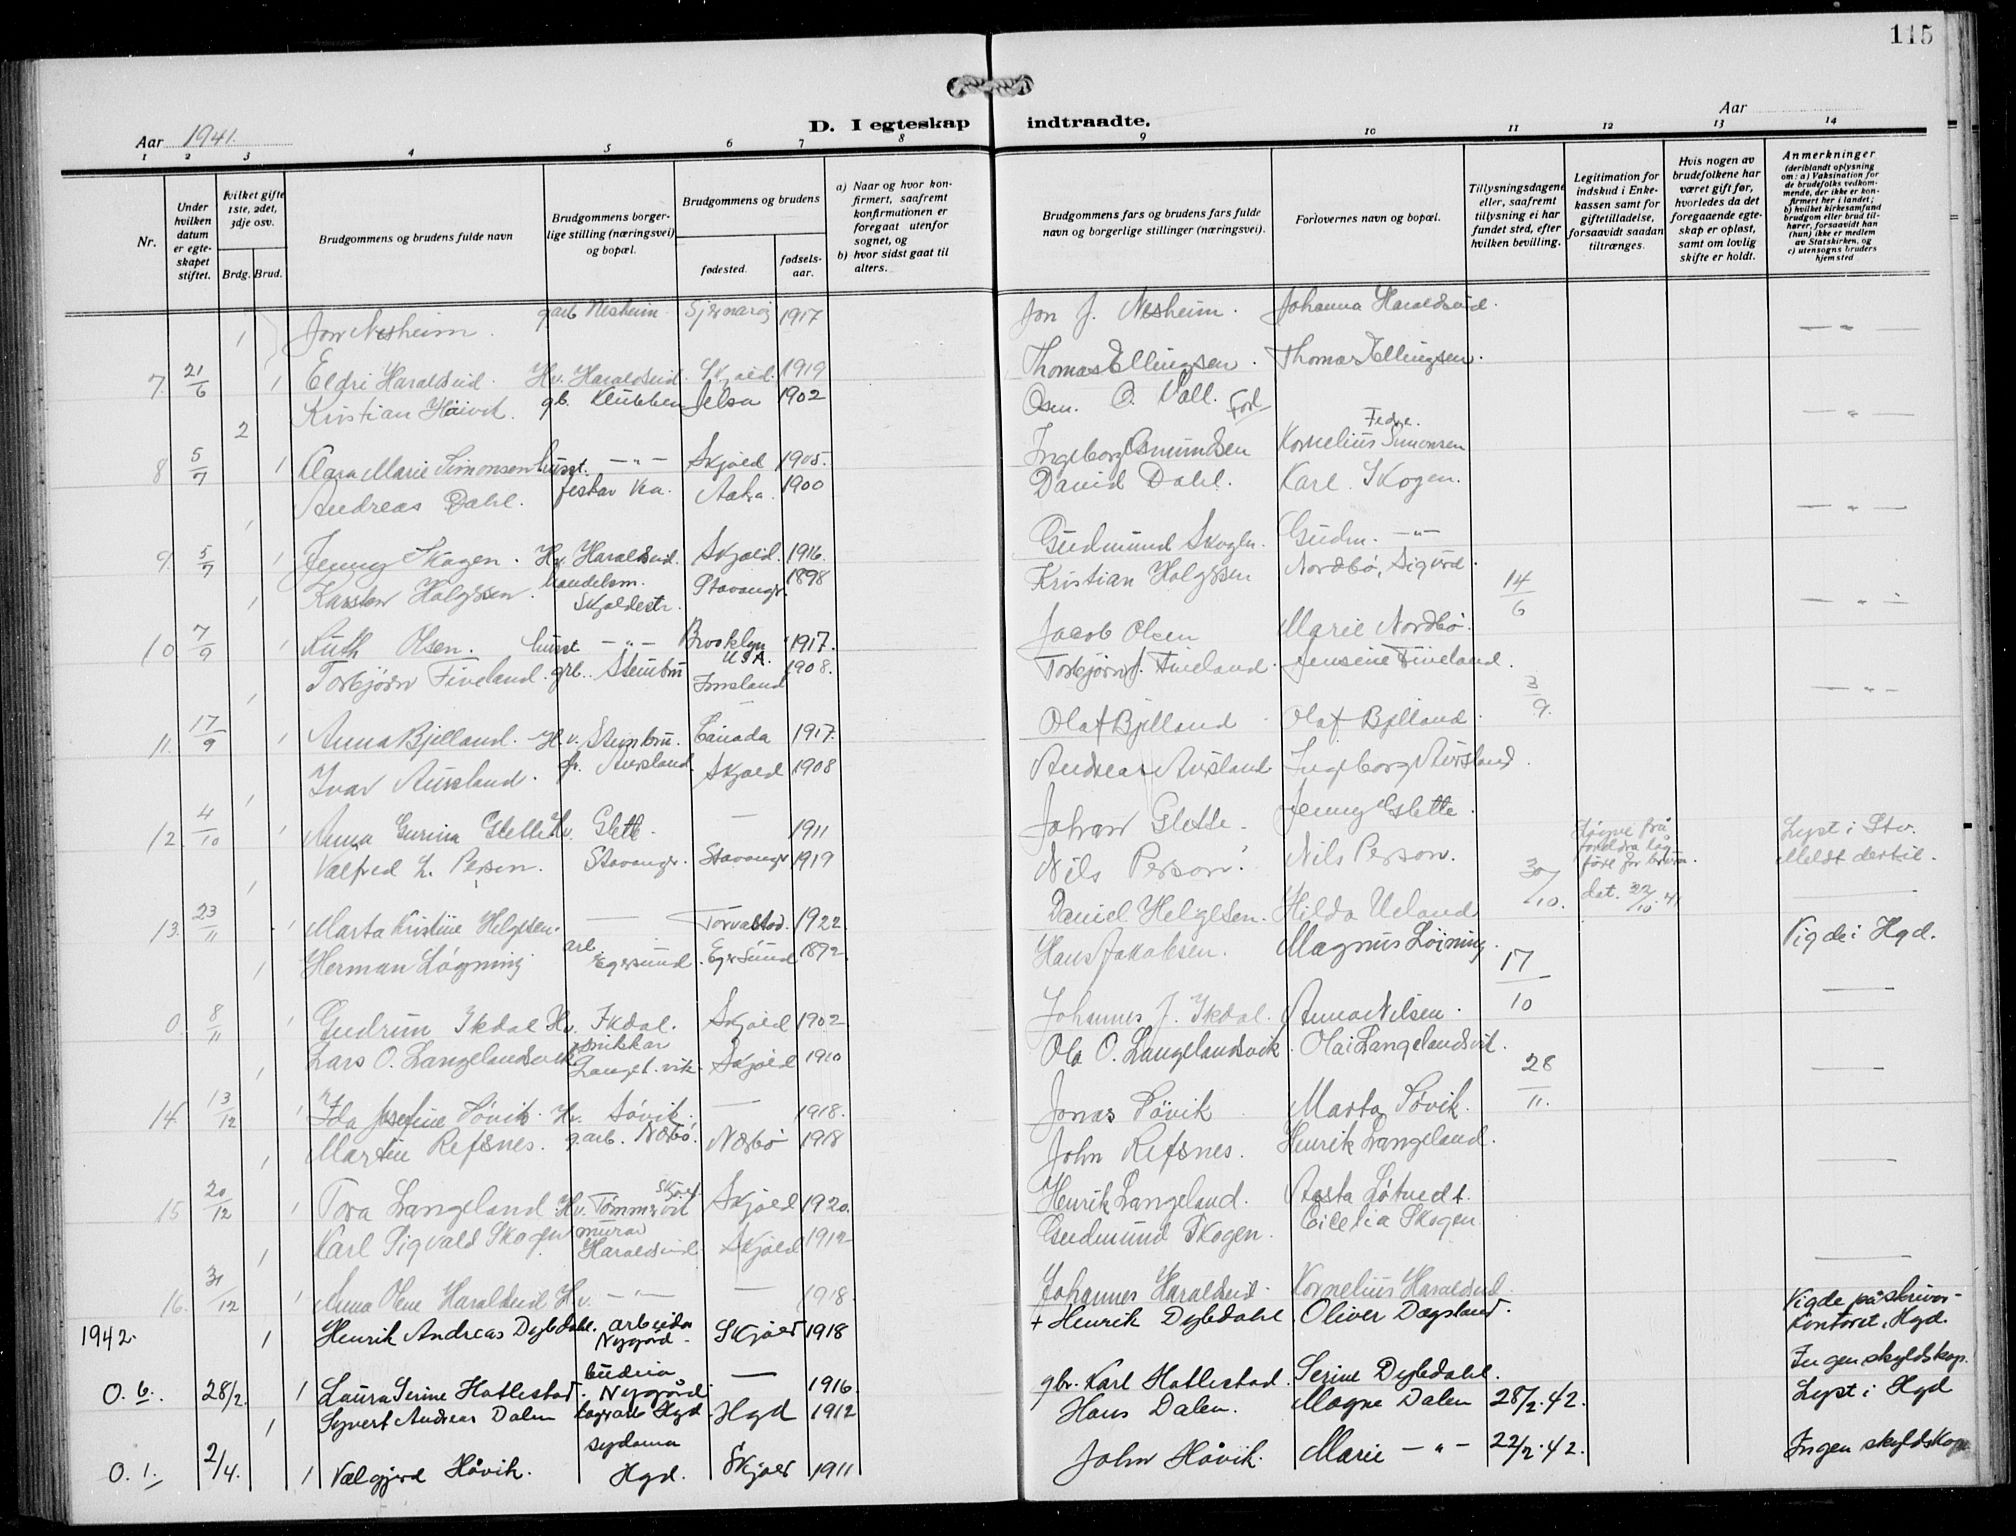 115
Aar 1941. D. I egteskap indtraadte. Aar
1 2 3 4 5 6 7 8 9 10 11 12 13 14
Nr.
Under hvilken datum er egteskapet stiftet.
hvilket gifte 1ste, 2det, 3dje osv.
Brdg. Brud.
Brudgommens og brudens fulde navn
Brudgommens borgerlige stilling (næringsvei) og bopæl.
Brudgommens og brudens
fødested.
fødselsaar.
a) Naar og hvor konfirmert, saafremt konfirmationen er foregaat utenfor sognet, og
b) hvor sidst gaat til alters.
Brudgommens fars og brudens fars fulde navn og borgerlige stillinger (næringsvei).
Forlovernes navn og bopæl.
Tillysningsdagene eller, saafremt tillysning ei har fundet sted, efter hvilken bevilling.
Legitimation for indskud i Enkekassen samt for giftetilladelse, forsaavidt saadan tiltrænges.
Hvis nogen av brudefolkene har været gift før, hvorledes da det foregaaende egteskap er opløst, samt om lovlig skifte er holdt.
Anmerkninger
(deriblandt oplysning om: a) Vaksination for de brudefolks vedkommende, der ikke er konfirmert her i landet; b) hvilket kirkesamfund brudgom eller brud tilhører, forsaavidt han (hun) ikke er medlem av Statskirken, og c) utensogns bruders hjemsted
1 Jon Nesheim. garb Nesheim 1917 Jon J. Nesheim. Johanna Haraldseid. — " —
7. 21/6 1 Eldri Haraldseid. Hv. Haraldseid. Skjold. 1919 Thomas Ellingsen. Thomas Ellingsen.
2 Kristian Håivik. gb. Klubben Jelsa 1902 Osm. O. Vall. — " —
8 5/7 1 Clara Marie Simonsen husst. — " — Skjold 1905. Ingeborg Osmundsen Kornelius Simonsen
1 Andreas Dahl. 1900 David Dahl. Karl Skogen. — " —
9. 5/7 1 Jenny Skogen. Hv. Haraldseid. Skjold. 1916. Gudmund Skogen. Gudm. — " —
1 Karsten Holgersen. handelsm. Skjoldestr. Stavanger. 1898 Kristian Holgersen Nordbø, Sigurd. 14/6 — " —
10 7/9 1 Ruth Olsen. husst — " — Brooklyn USA. 1917. Jacob Olsen Marie Nordbø.
1 Torbjørn Fiveland. grb. Steinbru Imsland 1908. Torbjørn J. Fiveland. Jensine Fiveland. 3/9. — " —
11. 17/9 1 Anna Bjelland. Hv. Steinbru. Canada 1917. Olaf Bjelland Olaf Bjelland.
1 Ivar Aursland. Aursland. Skjold 1908 Andreas Aursland Ingeborg Aursland.
12. 4/10 1 Anna Gurina Glette Hv. Glette. — 1911 Johan Glette. Jenny Glette.
1 Valfred L. Person. Stavanger. Stavanger 1919 Nils Person. Nils Person. 30/10. Løyve frå foreldra låg føre for bruri. dat. 22/10.41 Lyst i Stv. Meldt dertil.
13. 23/11 1 Marta Kristine Helgesen. — Torvastad. 1922. Daniel Helgesen. Hilda Ueland —
1 Herman Løgning arb. Egersund. Egersund 1892. Hans Jakobsen. Magnus Løining. 17/10 Vigde i Hgd.
0. 8/11 1 Gudrun Ikdal Hv. Ikdal. Skjold 1902 Johannes J. Ikdal. Anna Nilsen. —
1 Lars O. Langelandsvik snikkar Langel.vik. Skjold 1910 Ola O. Langelandsvik. Olai Langelandsvik. 28/11.
14. 13/12 1 Ida Josefine Søvik. Hv. Søvik. — 1918. Jonas Søvik Marta Søvik. —
1 Martin Refsnes. garb. Nærbø. Nærbø 1918 John Refsnes. Henrik Langeland.
15 20/12 1 Tora Langeland. Hv. Tømmervik Skjold 1920. Henrik Langeland. Aasta Løtvedt. —
1 Karl Sigvald Skogen murar Haraldseid. Skjold 1912 Gudmund Skogen. Cicelia Skogen
16. 31/12 1 Anna Olene Haraldseid Hv. — " — — 1918. Johannes Haraldseid. Kornelius Haraldseid —
1942. 1 Henrik Andreas Dybdahl. arbeidar Nygård. Skjold 1918 + Henrik Dybdahl. Oliver Dagsland. Vigde på skrivarkontoret, Hgd.
O. 6. 28/2. 1 Laura Serine Hatlestad. budeia Nygård. — 1916. gbr. Karl Hatlestad. Serine Dybdahl. Ingen skyldskap.
1 Syvert Andreas Dalen Hgd. Hgd 1912 Hans Dalen. Magne Dalen 28/2.42. Lyst i Hgd
O. 1. 2/4. 1 Valgjerd Håvik. sydama Hgd. Skjold 1911 John Håvik. Marie — " — 22/2.42. Ingen skyldskap.